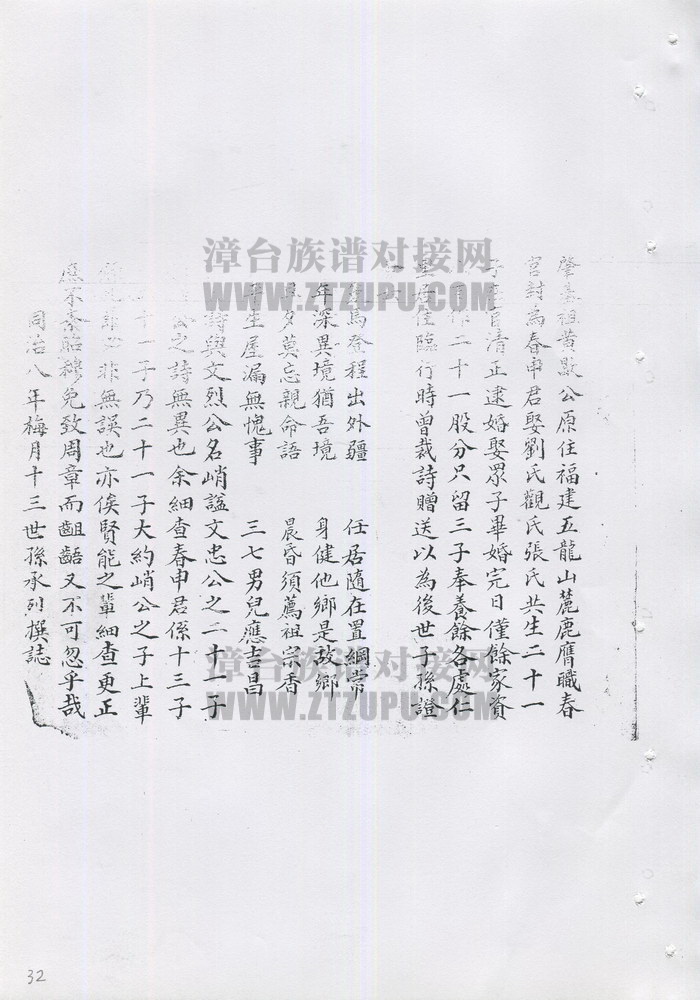 肇基祖黃歇公原住福建五龍山麓鹿膺職春
宮封為春申君娶劉氏觀氏張氏共生二十一
子 官清正逮婚娶眾子畢婚完日僅餘家資
作二十一股分只留三子奉養餘各處仁
里居住臨行時曾裁詩贈送以為後世子孫證
馬登程出外疆 任居隨在置綱常
年深異境猶吾境 身健他鄉是故鄉
夕莫忘親命語 晨昏須薦祖宗香
平生屋漏無愧事 三七男兒應吉昌
詩與文烈公名峭謚文忠公之二十一子
公之詩無異也余細查春申君係十三子
十一子乃二十一子大約峭公之子上輩
非無誤也亦俟賢能之輩細查更正
應不紊昭穆免致周章而齟齬又不可忽乎哉
同治八年梅月十三世孫承列撰誌
漳台族谱对接网
WWW.ZTZUPU.COM
漳台族谱对接网
WWW.ZTZUPU.COM
32